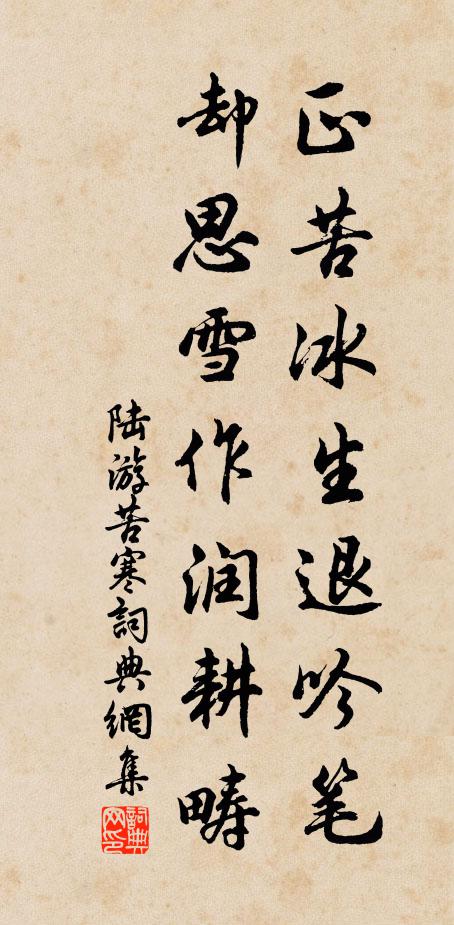 正苦冰生退吟笔
却思雪作润耕畴
陆游苦寒詞典網集
詞典网印